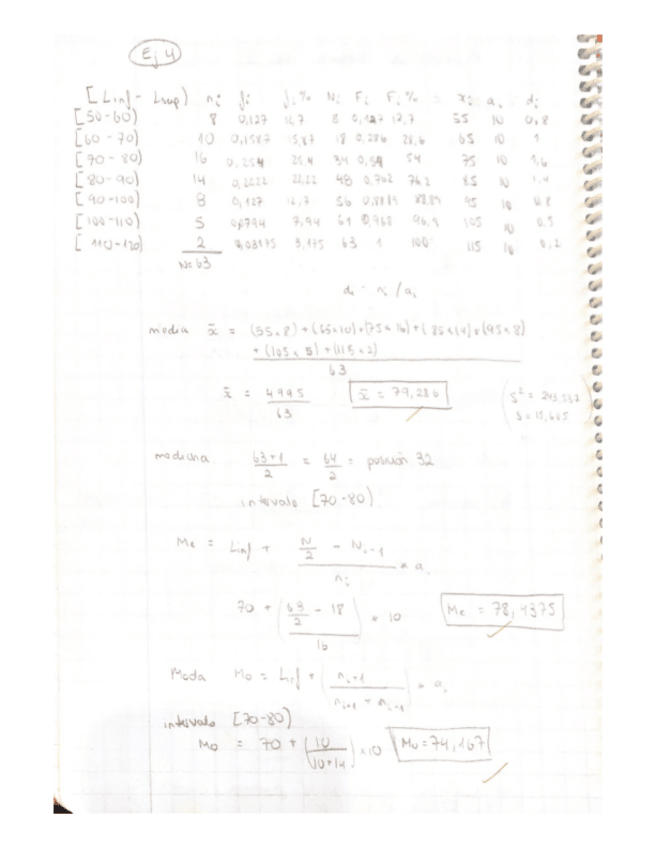 Ej 4
[Linf - Lsup) ni fi fi% Ni Fi Fi% xi ai di
[50-60) 8 0,127 12,7 8 0,127 12,7 55 10 0,8
[60 - 70) 10 0,1587 15,87 18 0,286 28,6 65 10 1
[70 - 80) 16 0,254 25,4 34 0,54 54 75 10 1,6
[80-90) 14 0,2222 22,22 48 0,762 76,2 85 10 1,4
[90-100) 8 0,127 12,7 56 0,8889 88,89 95 10 0,8
[100-110) 5 0,0794 7,94 61 0,968 96,8 105 10 0,5
[110-120) 2 0,03175 3,175 63 1 100 115 10 0,2
N=63
di = ni / ai
media x̄ = (55×8)+(65×10)+(75×16)+(85×14)+(95×8)
+(105×5)+(115×2)
63
x̄ = 4995 / 63 x̄ = 79,286
S² =
S = 15,605
mediana 63+1 / 2 = 64 / 2 = posición 32
intervalo [70-80)
Me = Linf + N/2 - Ni-1 / ni * ai
70 + (63/2 - 18 / 16) * 10 Me = 78,4375
Moda Mo = Linf + (ni+1 / ni+1 + ni-1) * ai
intervalo [70-80)
Mo = 70 + (10 / 10+14) ×10 Mo = 74,167